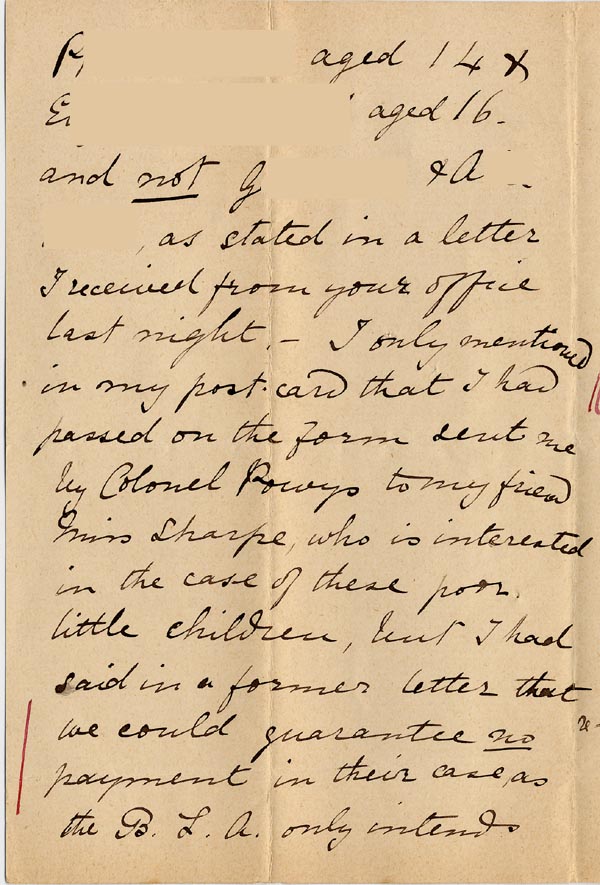 aged 14 &
aged 16.
and not G & A
, as stated in a letter
I received from your office
last night. – I only mentioned
in my post-card that I had
passed on the form sent me
by Colonel Powys to my friend
Miss Sharpe, who is interested
in the case of these poor
little children, but I had
said in a former letter that
we could guarantee no
payment in their case, as
the B. L. A. only intends